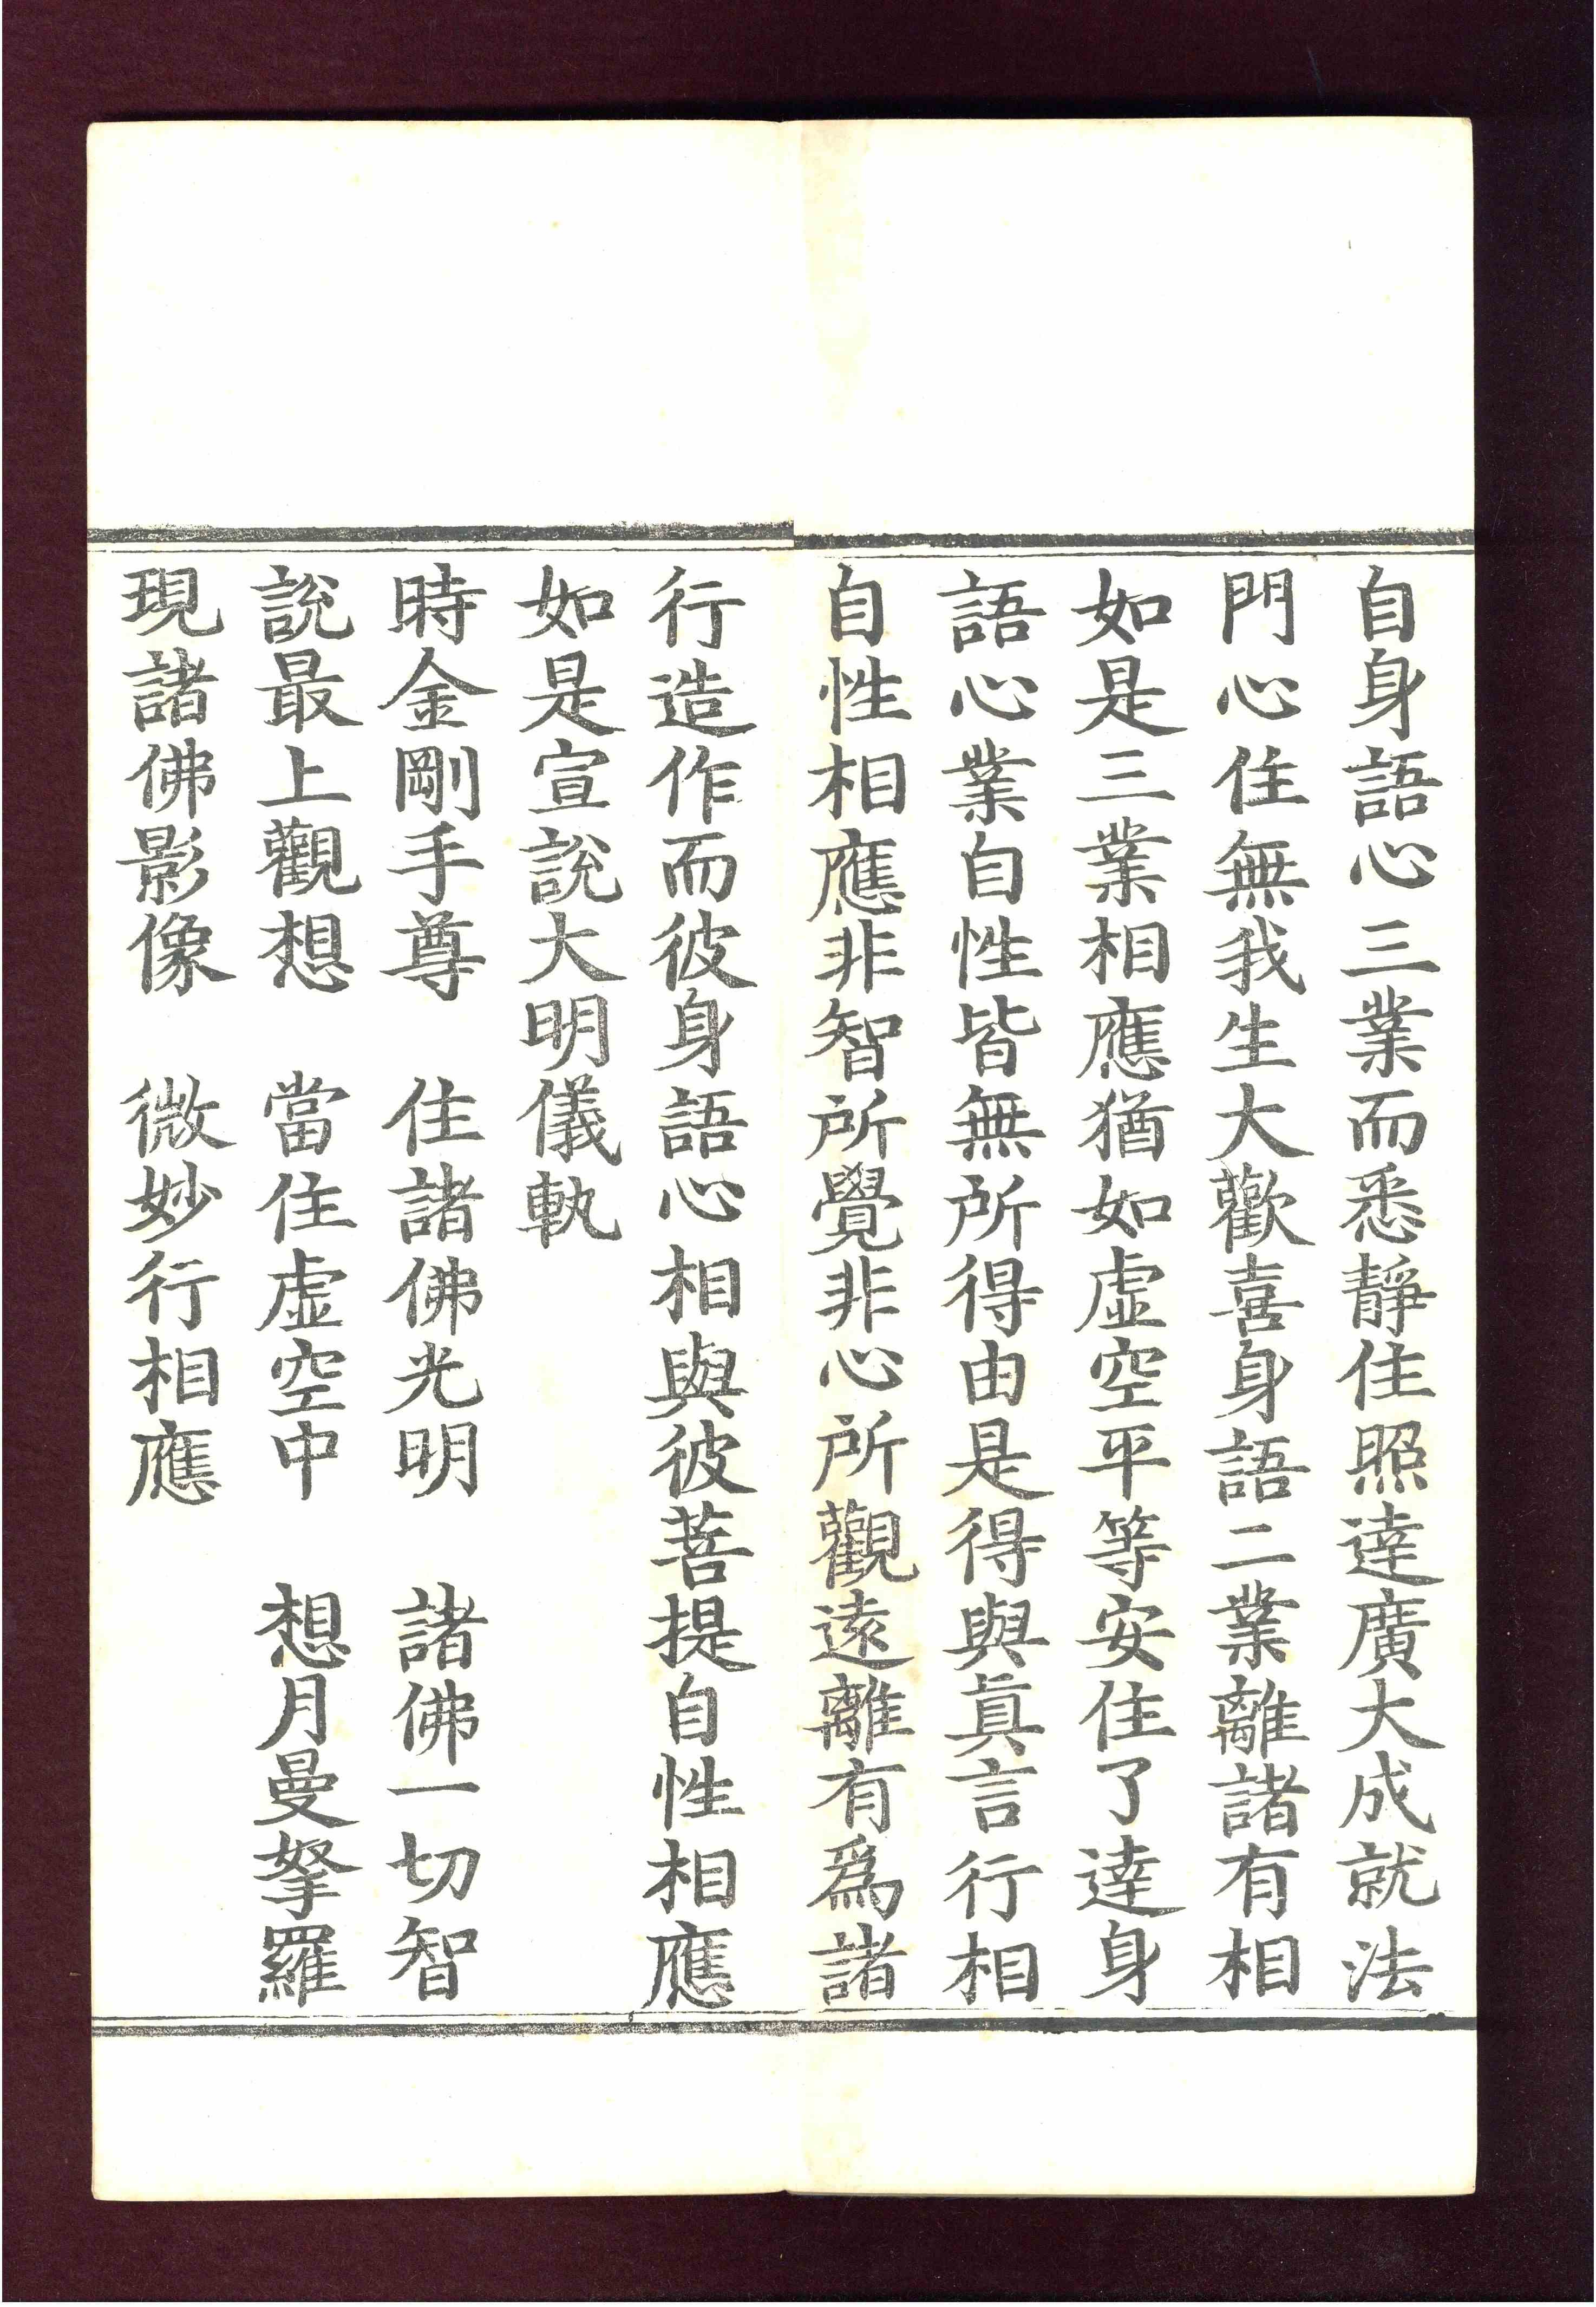 自身語心三業而悉靜住照達廣大成就法
門心住無我生大歡喜身語二業離諸有相
如是三業相應猶如虛空平等安住了達身
語心業自性皆無所得由是得與眞言行相
自性相應非智所覺非心所觀遠離有爲諸
行造作而彼身語心相與彼菩提自性相應
如是宣說大明儀軌
時金剛手尊　住諸佛光明　諸佛一切智
說最上觀想　當住虛空中　想月曼拏羅
現諸佛影像　微妙行相應